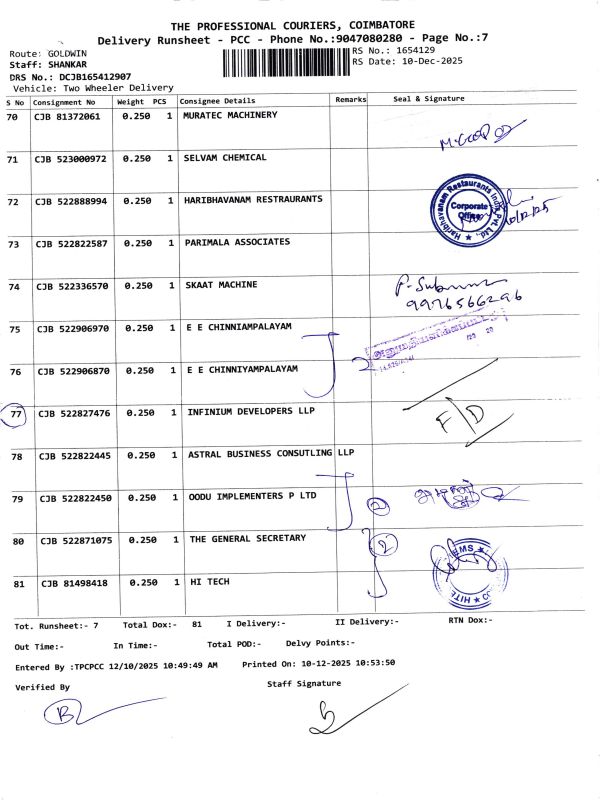 THE PROFESSIONAL COURIERS, COIMBATORE
Delivery Runsheet - PCC - Phone No.:9047080280 - Page No.:7
Route: GOLDWIN
RS No.: 1654129
Staff: SHANKAR
RS Date: 10-Dec-2025
DRS No.: DCJB165412907
Vehicle: Two Wheeler Delivery
S No Consignment No Weight PCS Consignee Details Remarks Seal & Signature
70 CJB 81372061 0.250 1 MURATEC MACHINERY
71 CJB 523000972 0.250 1 SELVAM CHEMICAL
72 CJB 522888994 0.250 1 HARIBHAVANAM RESTRAURANTS
Haribhavanam Restaurants India Pvt. Ltd.
Corporate
Office
10/12/25
73 CJB 522822587 0.250 1 PARIMALA ASSOCIATES
74 CJB 522336570 0.250 1 SKAAT MACHINE
9976566296
75 CJB 522906970 0.250 1 E E CHINNIAMPALAYAM
76 CJB 522906870 0.250 1 E E CHINNIYAMPALAYAM
2
77 CJB 522827476 0.250 1 INFINIUM DEVELOPERS LLP
F/D
78 CJB 522822445 0.250 1 ASTRAL BUSINESS CONSUTLING LLP
79 CJB 522822450 0.250 1 OODU IMPLEMENTERS P LTD
2
80 CJB 522871075 0.250 1 THE GENERAL SECRETARY
2
81 CJB 81498418 0.250 1 HI TECH
Tot. Runsheet:- 7 Total Dox:- 81 I Delivery:- II Delivery:- RTN Dox:-
Out Time:- In Time:- Total POD:- Delvy Points:-
Entered By :TPCPCC 12/10/2025 10:49:49 AM Printed On: 10-12-2025 10:53:50
Verified By Staff Signature